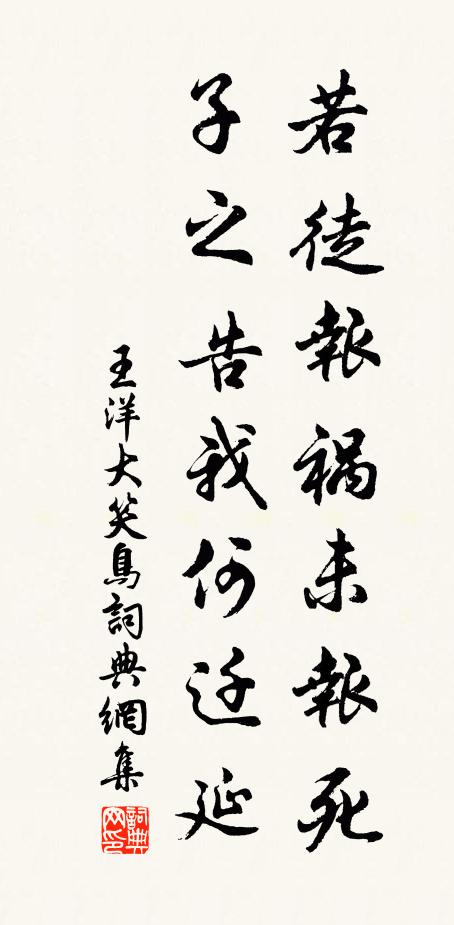 若徒報禍未報死
子之告我何迂延
王洋大笑鳥詞典網集
詞典网印